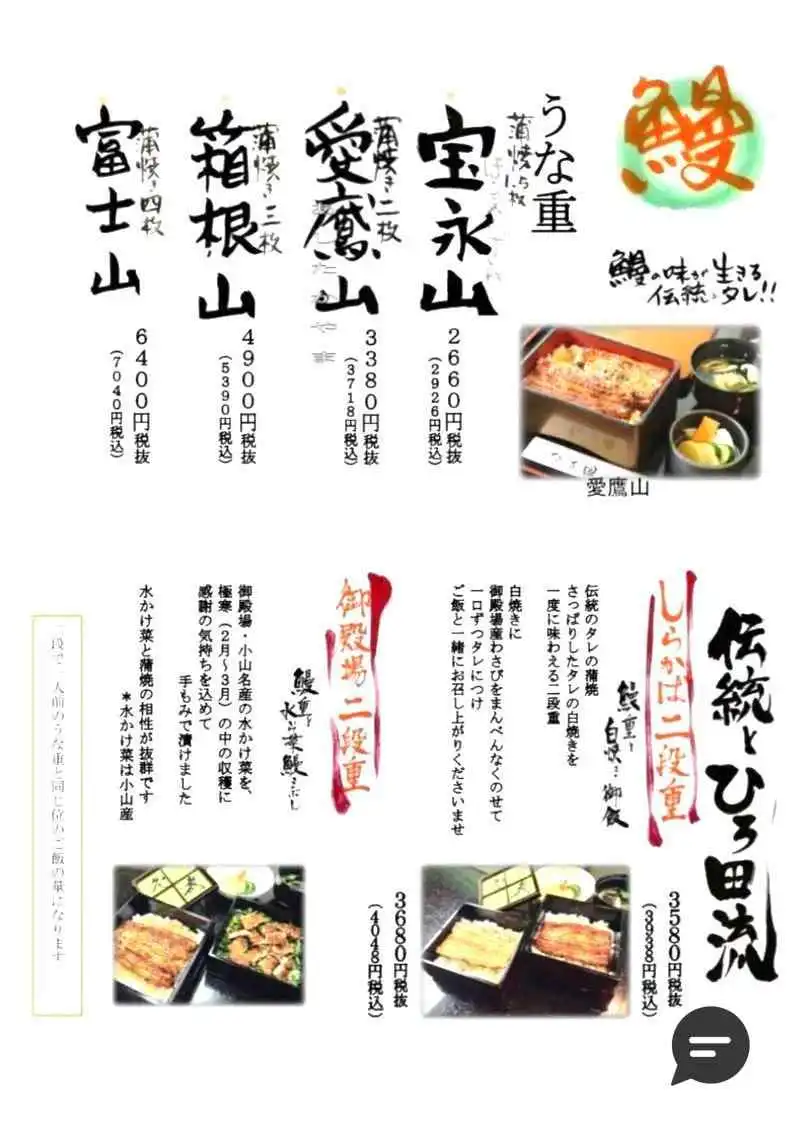 鰻
鰻の味が生きる
伝統のタレ!!
うな重
蒲焼1.5枚
宝永山
2660円税抜
(2926円税込)
蒲焼き二枚
愛鷹山
あしたかやま
3380円税抜
(3718円税込)
蒲焼き三枚
箱根山
4900円税抜
(5390円税込)
蒲焼き四枚
富士山
6400円税抜
(7040円税込)
愛鷹山
伝統とひろ田流
しらかば二段重
鰻重と
白焼き御飯
伝統のタレの蒲焼
さっぱりしたタレの白焼きを
一度に味わえる二段重
白焼きに
御殿場産わさびをまんべんなくのせて
一口ずつタレにつけ
ご飯と一緒にお召し上がりくださいませ
3580円税抜
(3938円税込)
御殿場二段重
鰻重と
御殿場・小山名産の水かけ菜を、
極寒(2月~3月)の中の収穫に
感謝の気持ちを込めて
手もみで漬けました
水かけ菜と蒲焼の相性が抜群です
*水かけ菜は小山産
3680円税抜
(4048円税込)
二段で一人前のうな重と同じ位のご飯の量になります